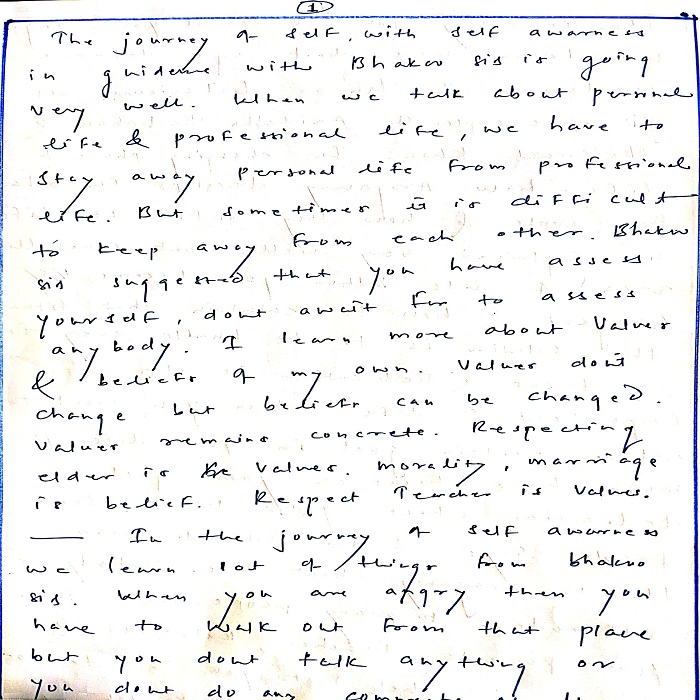 1
The journey of self, with self awarness
in guidence with Bhakw sis is going
very well. When we talk about personal
life & professional life, we have to
stay away personal life from professional
life. But sometimes it is difficult
to keep away from each other. Bhakw
sis suggested that you have assess
yourself, dont await for to assess
anybody. I learn more about Values
& beliefs of my own. Values dont
change but beliefs can be changed.
Values remains concrete. Respecting
elder is Values. morality, marriage
is belief. Respect Teacher is Values.
— In the journey of self awarness
we learn lot of things from bhakw
sis. When you are angry then you
have to walk out from that place
but you dont talk anything or
you dont do any